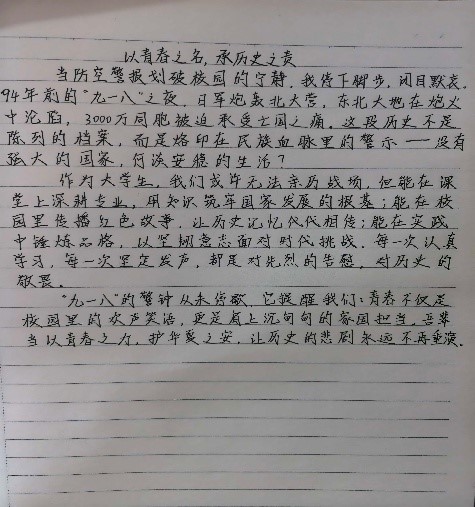 以青春之名,承历史之责
当防空警报划破校园的宁静,我停下脚步,闭目默哀。
94年前的“九一八”之夜,日军炮轰北大营,东北大地在炮火
中沦陷,3000万同胞被迫承受亡国之痛。这段历史不是
陈列的档案,而是烙印在民族血脉里的警示——没有
强大的国家,何谈安稳的生活?
作为大学生,我们或许无法亲历战场,但能在课
堂上深耕专业,用知识筑牢国家发展的根基;能在校
园里传播红色故事,让历史记忆代代相传;能在实践
中锤炼品格,以坚韧意志面对时代挑战。每一次认真
学习,每一次坚定发声,都是对先烈的告慰,对历史的
敬畏。
“九一八”的警钟从未停歇,它提醒我们:青春不仅是
校园里的欢声笑语,更是肩上沉甸甸的家国担当。吾辈
当以青春之力,护华夏之安,让历史的悲剧永远不再重演。